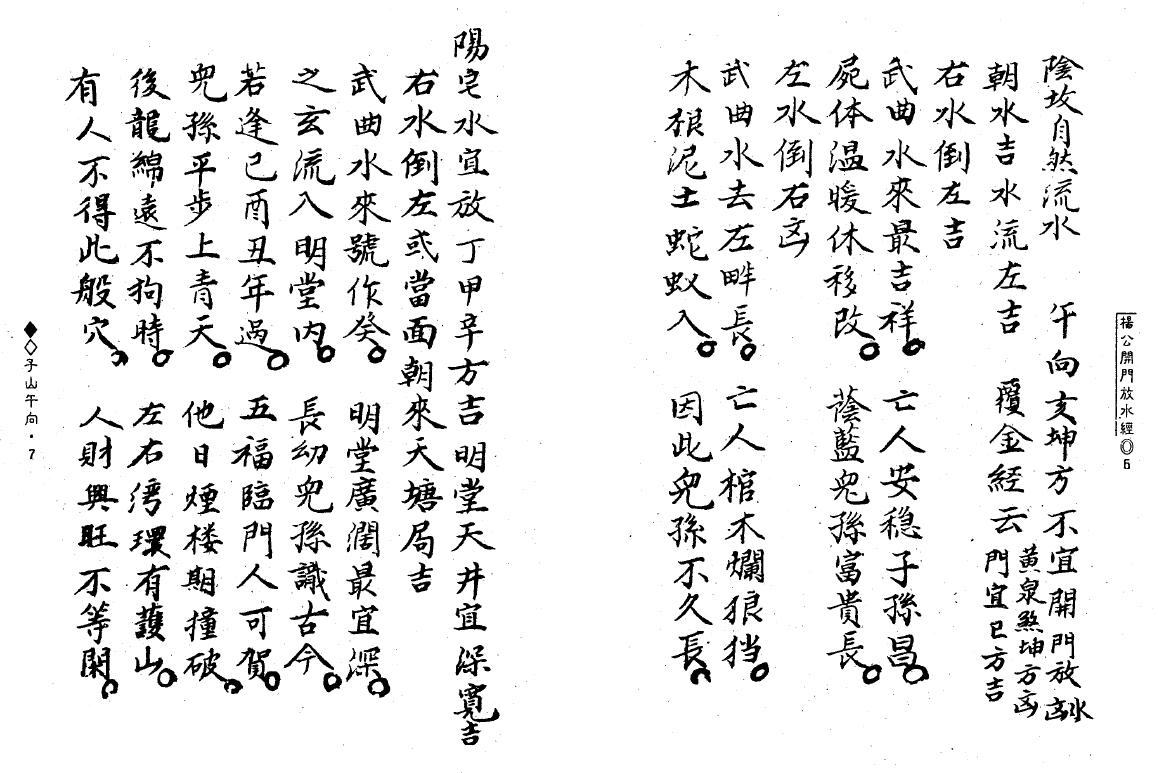 楊公開門放水經◎6
陰坟自然流水　午向亥坤方不宜開門放水凶
黃泉煞坤方凶
朝水吉水流左吉　覆金經云門宜巳方吉
右水倒左吉
武曲水來最吉祥　亡人安穏子孫昌
屍体温暖休移改　蔭藍兒孫富貴長
左水倒右凶
武曲水去左畔長　亡人棺木爛狼挡
木根泥土蛇蚁入　因此兒孫不久長
陽宅水宜放丁甲辛方吉明堂天井宜深寬吉
右水倒左或當面朝來天塘局吉
武曲水來號作癸　明堂廣濶最宜深
之玄流入明堂內　長幼兒孫識古今
若逢己酉丑年過　五福臨門人可賀
兒孫平步上青天　他日煙楼期撞破
後龍綿遠不狗時　左右湾環有護山
有人不得此般穴　人財興旺不等閑
◆◇子山午向・7